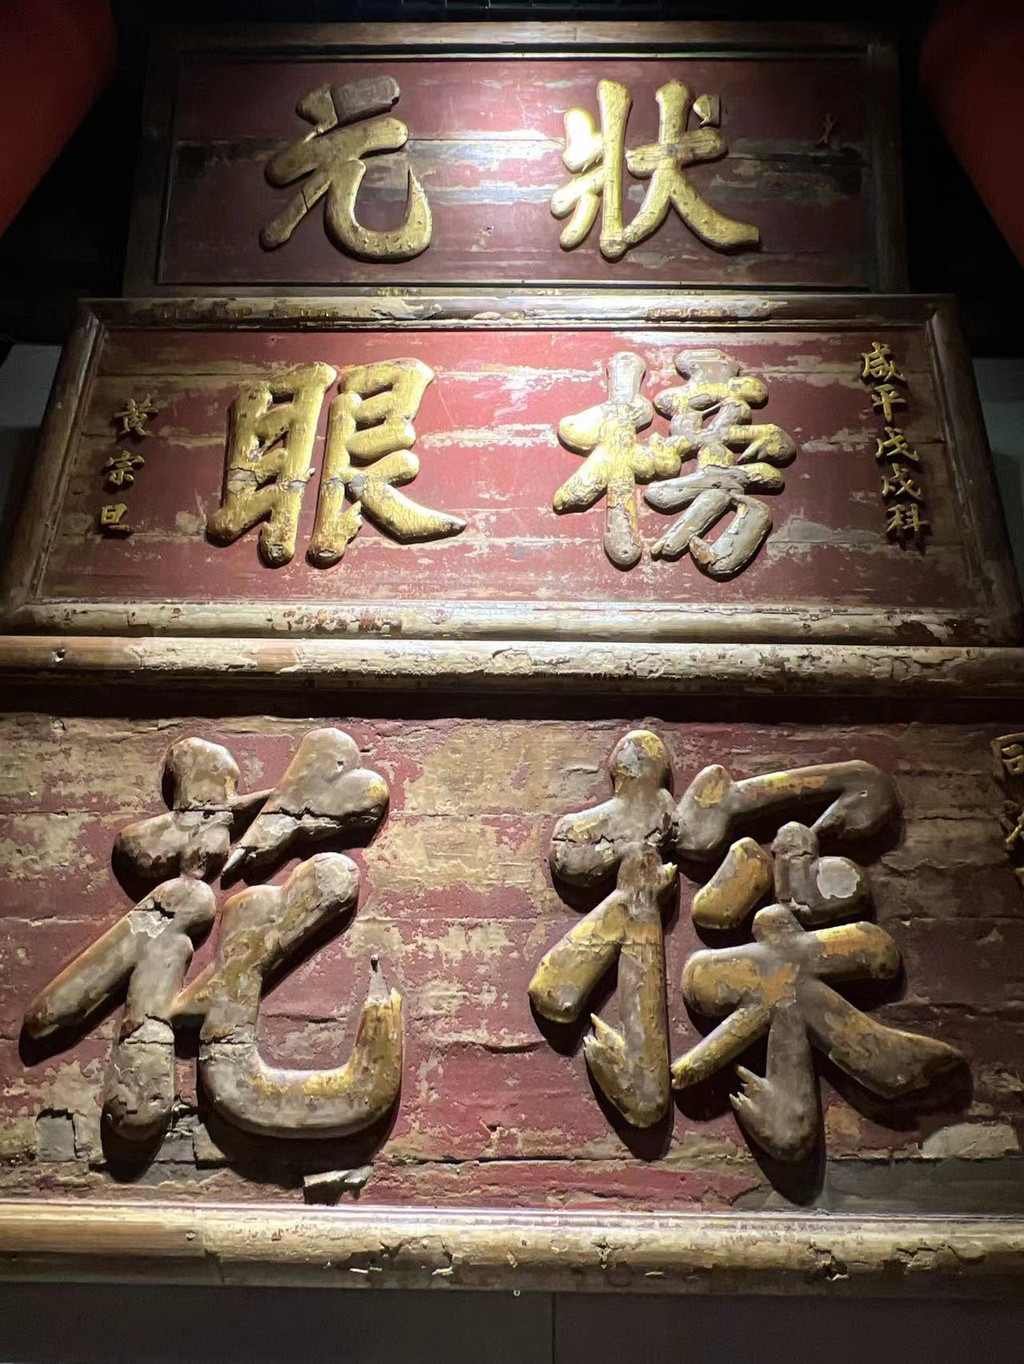 狀元
咸平戊戌科
榜眼
黃宗旦
探花